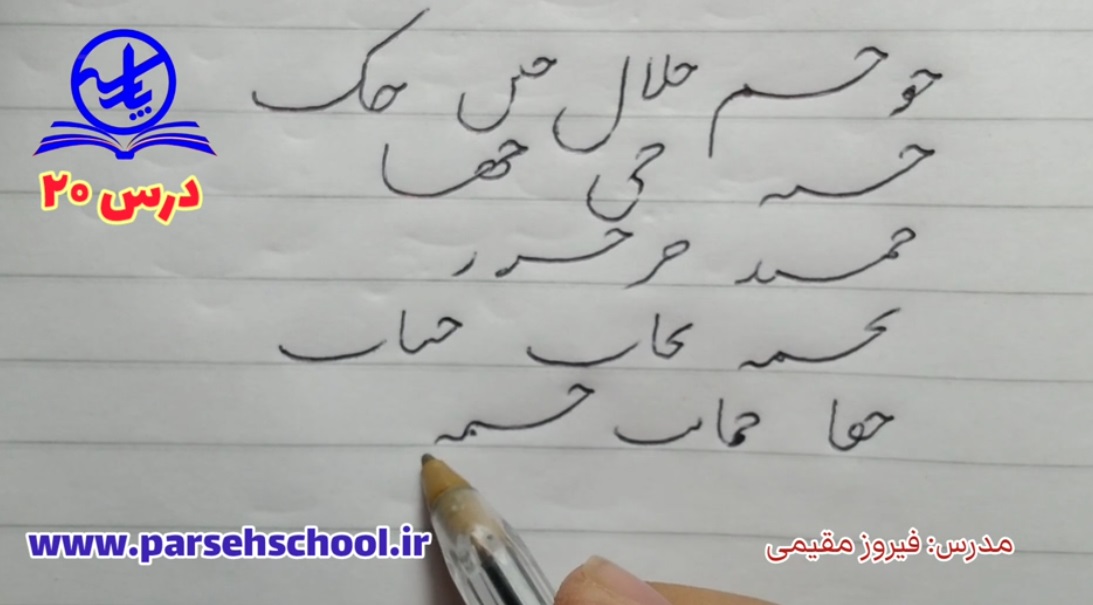 حو حسم حلال حس حک
حسه حی حها
حمسد حر حسدر
بحسمه بحاب حباب
حفا حماب حسمه
درس ۲۰
www.parsehschool.ir
مدرس: فیروز مقیمی